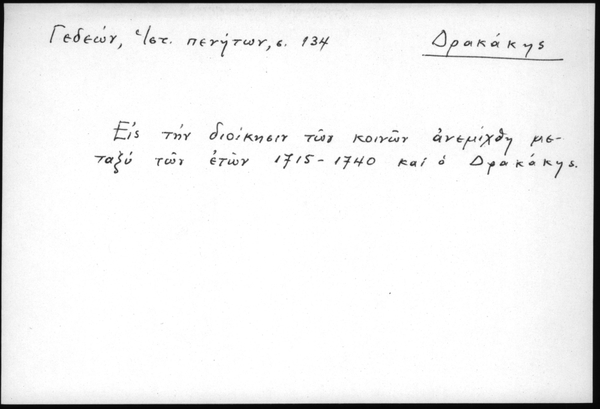 Γεδεών, Ἱστ. πενήτων, σ. 134
Δρακάκης
Εἰς τήν διοίκησιν τῶν κοινῶν ἀνεμίχθη με-
ταξύ τῶν ἐτῶν 1715-1740 καί ὁ Δρακάκης.